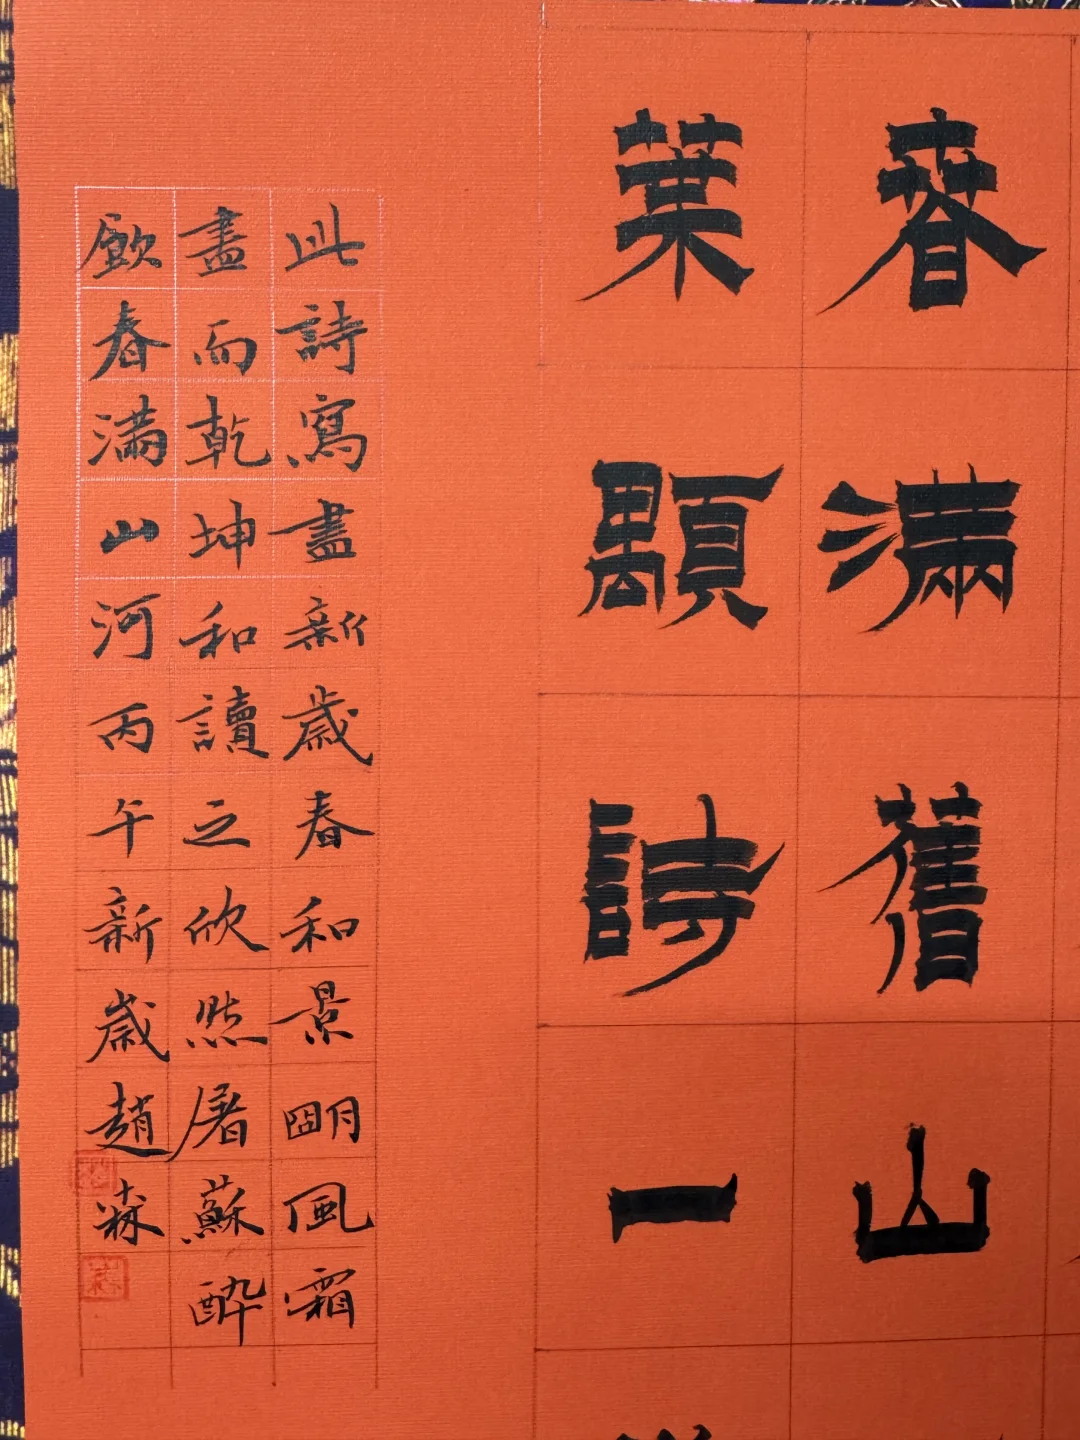 春滿舊山
葉詩一
此詩寫盡新歲春和景朙風霜
盡而乾坤和讀之欣然屠蘇醉
飲春滿山河丙午新歲趙森